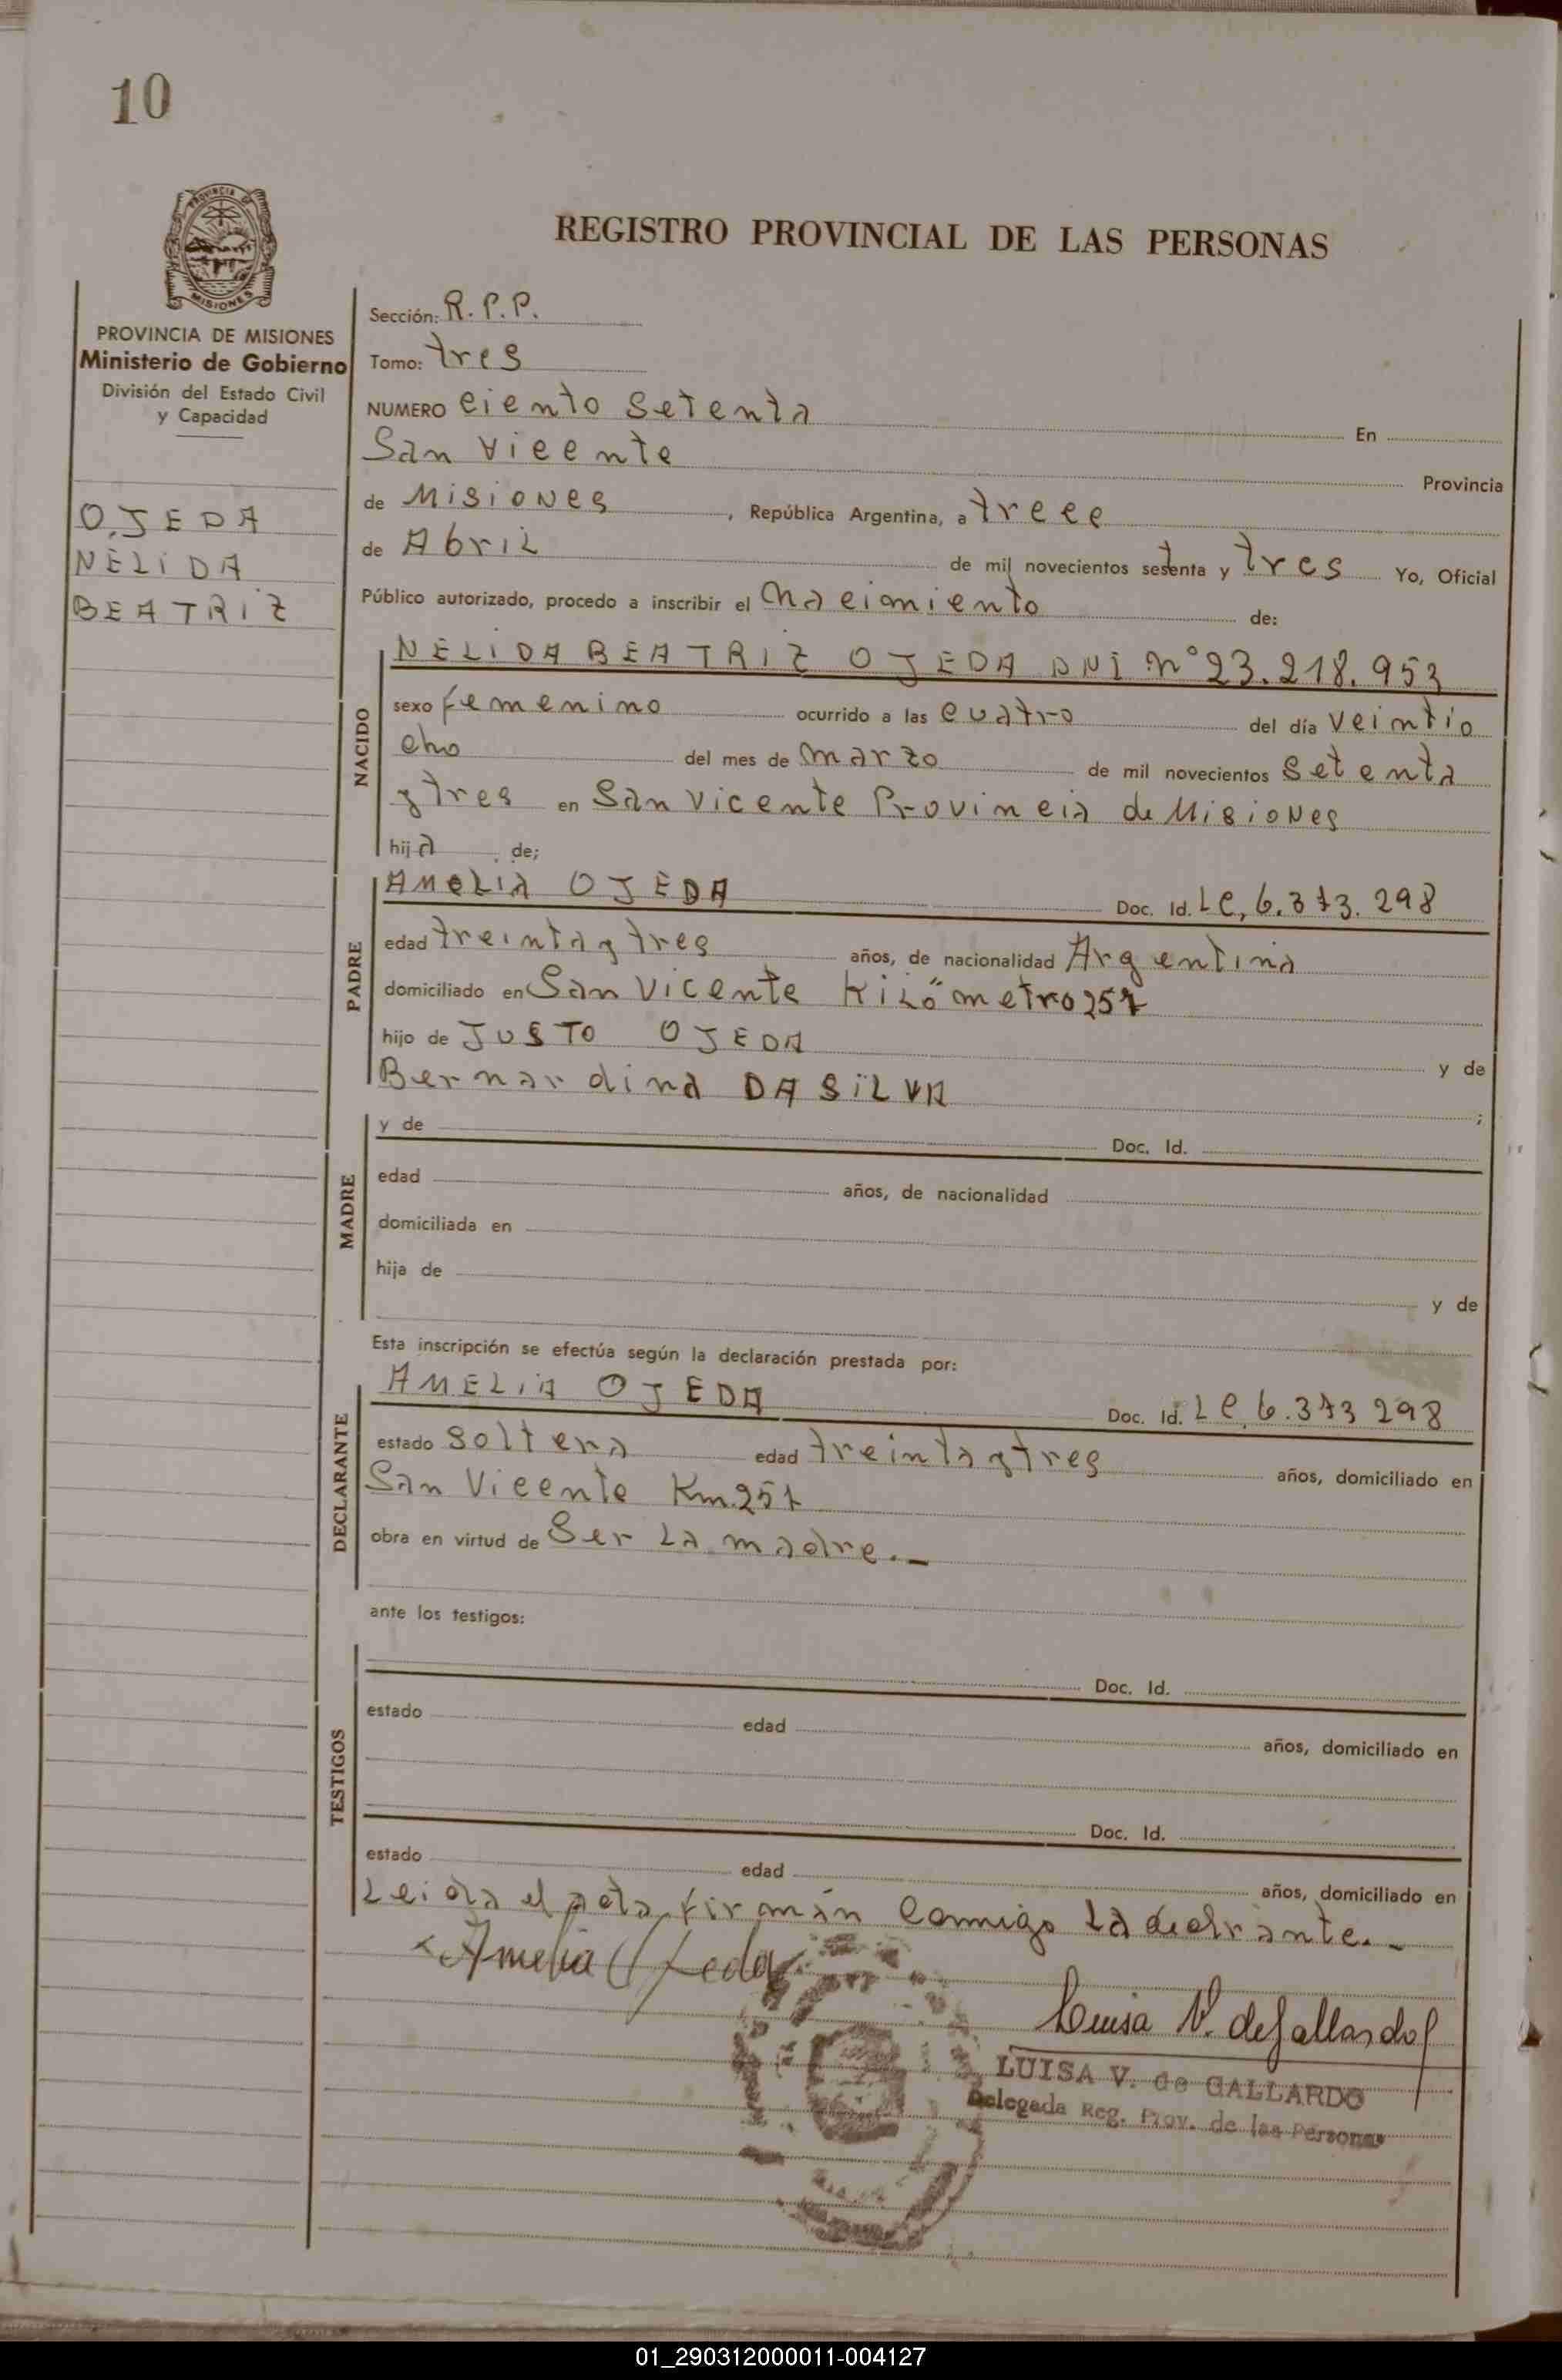 10
PROVINCIA DE MISIONES
Ministerio de Gobierno
División del Estado Civil
y Capacidad
OJEDA
NELIDA
BEATRIZ
REGISTRO PROVINCIAL DE LAS PERSONAS
Sección: R.P.P.
Tomo: tres
NUMERO ciento setenta En
San Vicente Provincia
de Misiones, República Argentina, a trece
de Abril de mil novecientos setenta y tres Yo, Oficial
Público autorizado, procedo a inscribir el nacimiento de:
NELIDA BEATRIZ OJEDA DNI Nº 23.218.953
NACIDO
sexo femenino ocurrido a las cuatro del día veintio
cho del mes de marzo de mil novecientos setenta
y tres en San Vicente Provincia de Misiones
hija de;
PADRE
AMELIA OJEDA Doc. Id. LC, 6.373.298
edad treinta y tres años, de nacionalidad Argentina
domiciliado en San Vicente Kilómetro 257
hijo de JUSTO OJEDA y de
Bernardina DA SILVA ;
MADRE
y de Doc. Id.
edad años, de nacionalidad
domiciliada en
hija de y de
Esta inscripción se efectúa según la declaración prestada por:
DECLARANTE
AMELIA OJEDA Doc. Id. LC. 6.373 298
estado soltera edad treinta y tres años, domiciliado en
San Vicente Km. 257
obra en virtud de Ser La madre.-
ante los testigos:
TESTIGOS
Doc. Id.
estado edad años, domiciliado en
Doc. Id.
estado edad años, domiciliado en
Leida el acta firmán conmigo La
Amelia Ojeda
Luisa V. de Gallardo
LUISA V. de GALLARDO
Delegada Reg. Prov. de las Personas
01_290312000011-004127